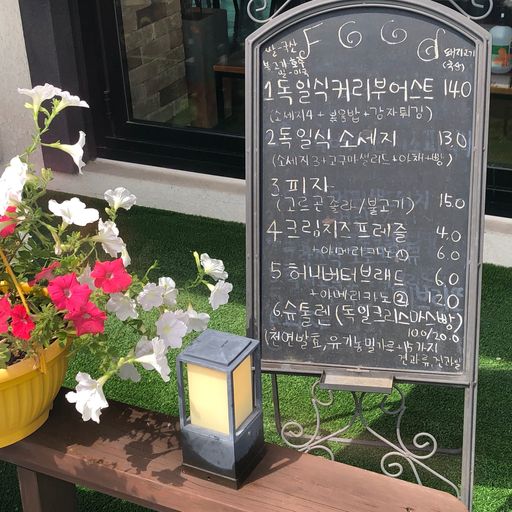 쌀-국산
Food
돼지고기
(국산)
1 독일식커리부어스트 14.0
(소세지4 + 볶음밥 + 감자튀김)
2 독일식 소세지 13.0
(소세지3+고구마샐러드+야채+빵)
3 피자
(고르곤졸라/불고기) 15.0
4 크림치즈프레즐 4.0
+아메리카노① 6.0
5 허니버터브래드 6.0
+아메리카노② 12.0
6. 슈톨렌(독일크리스마스빵)
10.0/20.0
(천연발효,유기농밀가루+15가지
견과류,건과일